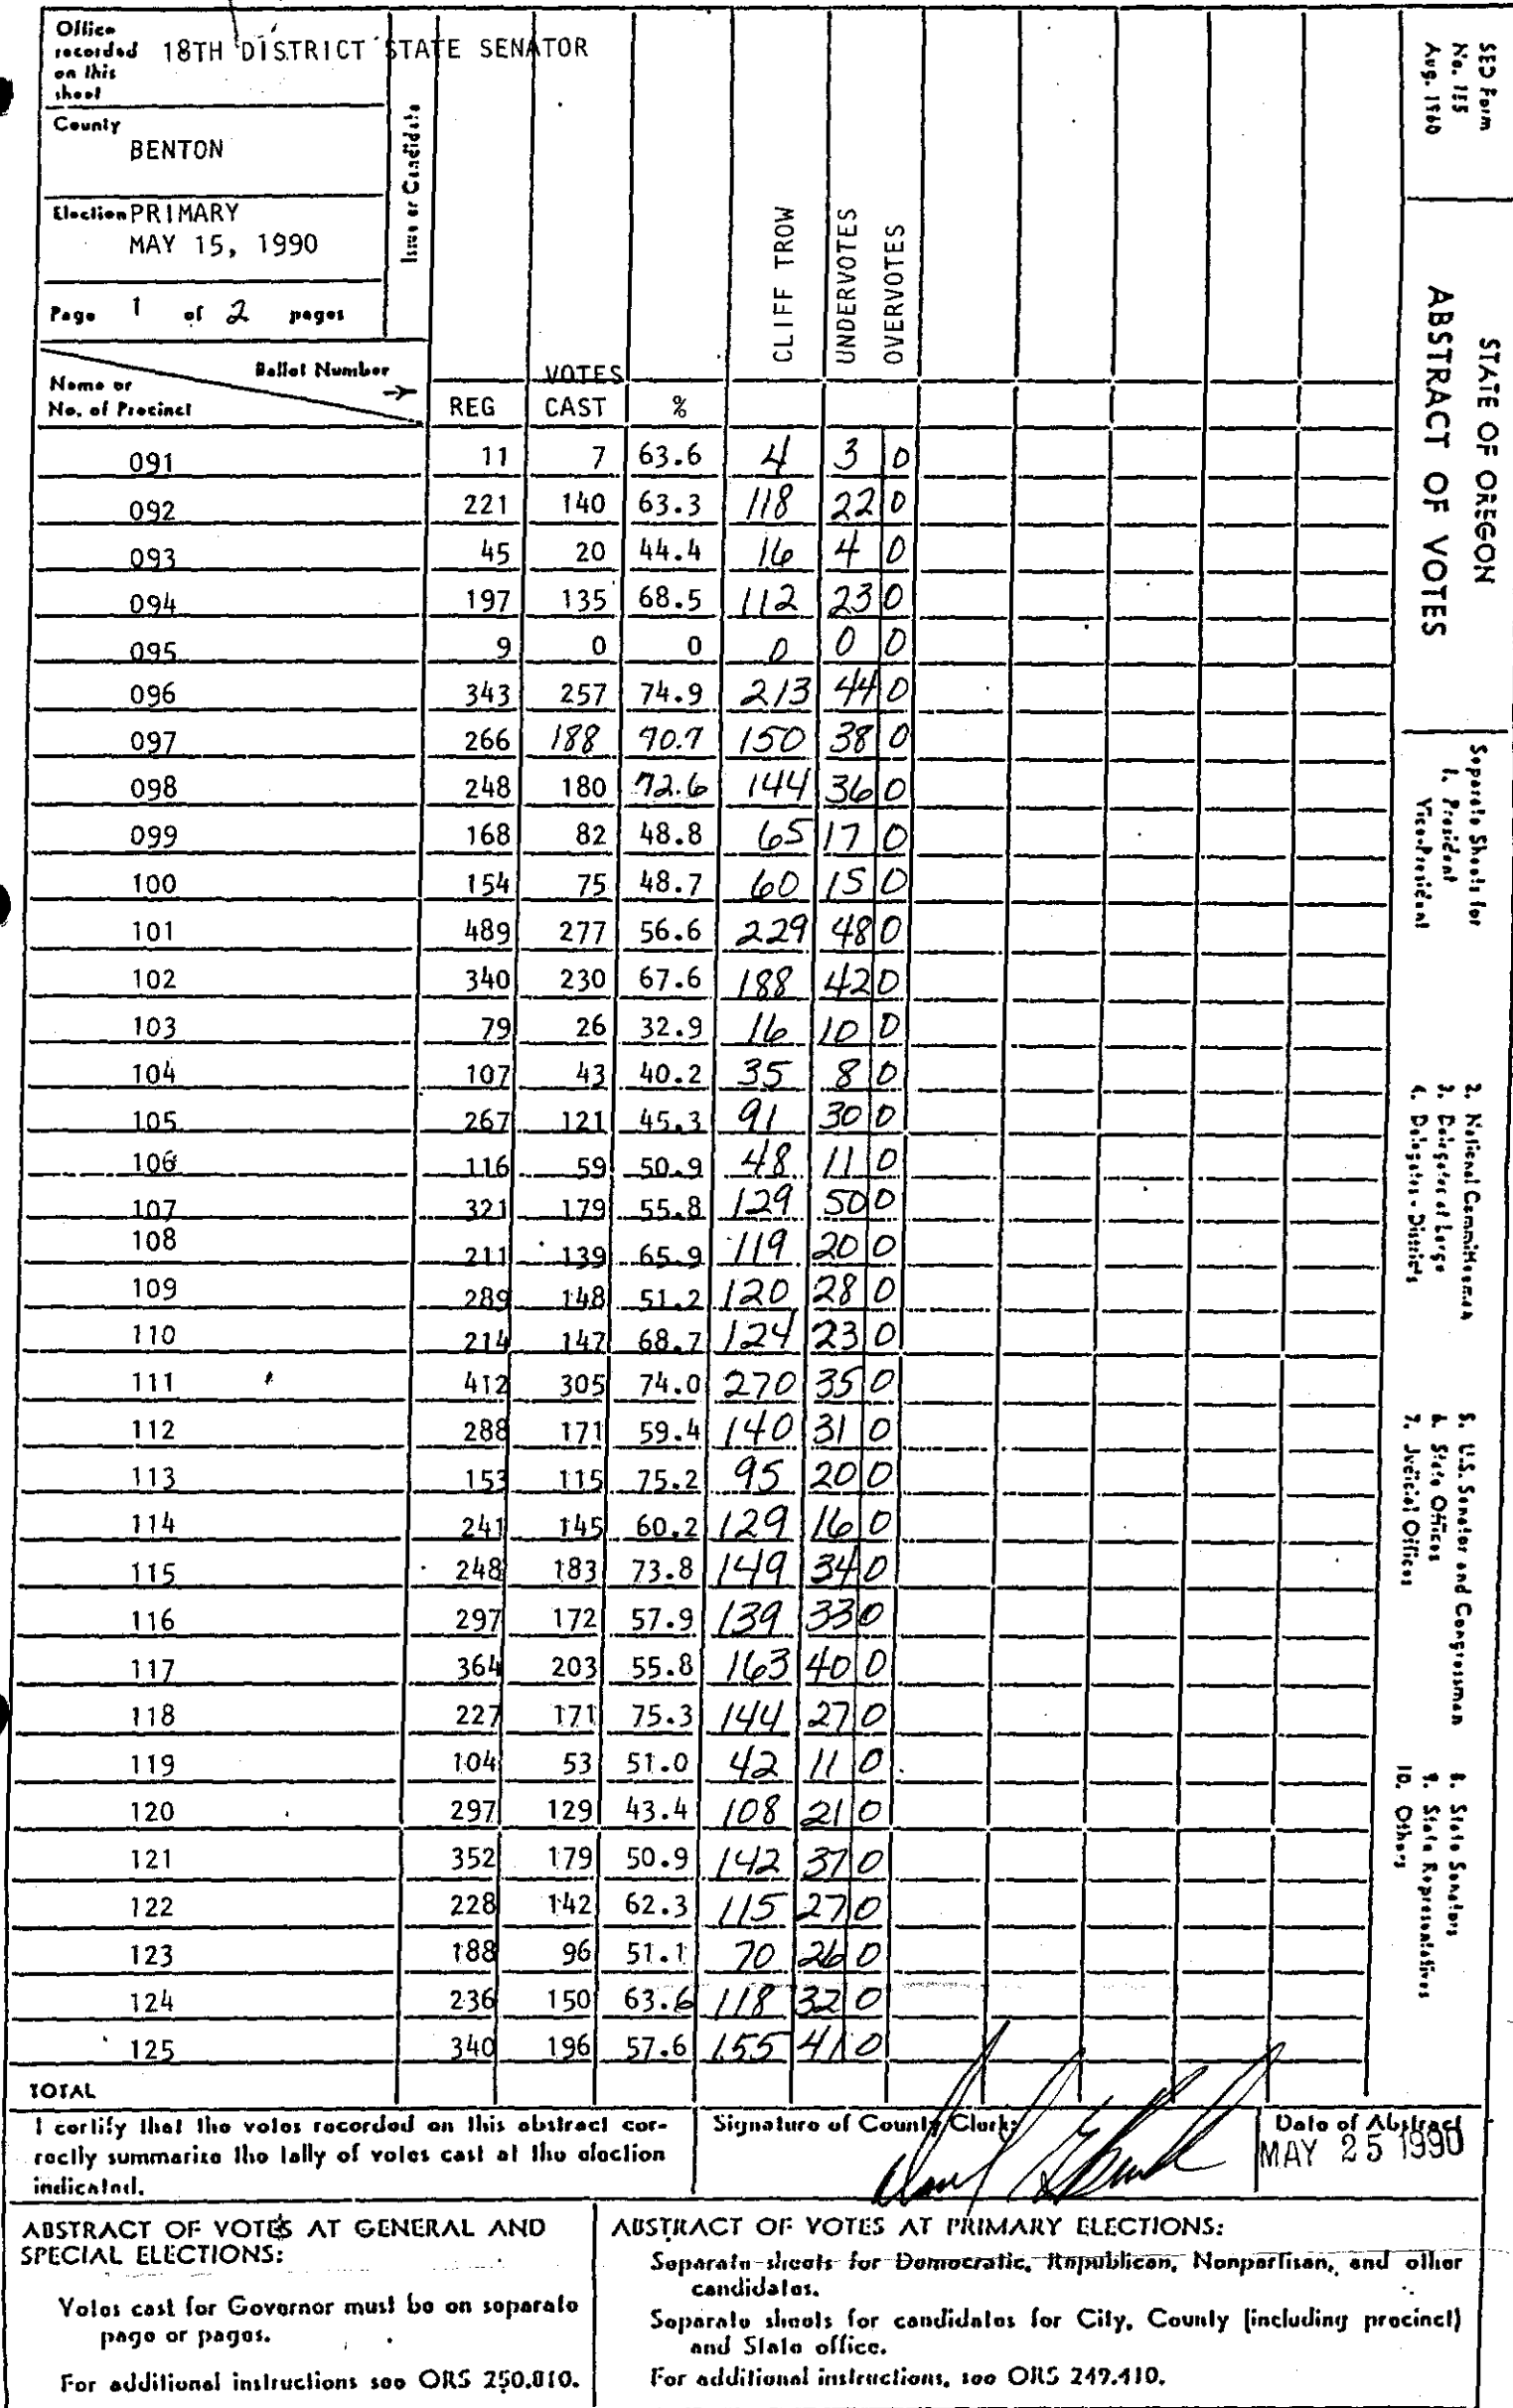 Office
recorded
on this
sheet
18TH DISTRICT STATE SENATOR
County
BENTON
Election PRIMARY
MAY 15, 1990
Page 1 of 2 pages
Issue or Candidate
CLIFF TROW
UNDERVOTES
OVERVOTES
Ballot Number
Name or
No. of Precinct
REG
VOTES
CAST
%
091 11 7 63.6 4 3 0
092 221 140 63.3 118 22 0
093 45 20 44.4 16 4 0
094 197 135 68.5 112 23 0
095 9 0 0 0 0 0
096 343 257 74.9 213 44 0
097 266 188 70.7 150 38 0
098 248 180 72.6 144 36 0
099 168 82 48.8 65 17 0
100 154 75 48.7 60 15 0
101 489 277 56.6 229 48 0
102 340 230 67.6 188 42 0
103 79 26 32.9 16 10 0
104 107 43 40.2 35 8 0
105 267 121 45.3 91 30 0
106 116 59 50.9 48 11 0
107 321 179 55.8 129 50 0
108 211 139 65.9 119 20 0
109 289 148 51.2 120 28 0
110 214 147 68.7 124 23 0
111 412 305 74.0 270 35 0
112 288 171 59.4 140 31 0
113 153 115 75.2 95 20 0
114 241 145 60.2 129 16 0
115 248 183 73.8 149 34 0
116 297 172 57.9 139 33 0
117 364 203 55.8 163 40 0
118 227 171 75.3 144 27 0
119 104 53 51.0 42 11 0
120 297 129 43.4 108 21 0
121 352 179 50.9 142 37 0
122 228 142 62.3 115 27 0
123 188 96 51.1 70 26 0
124 236 150 63.6 118 32 0
125 340 196 57.6 155 41 0
TOTAL
I certify that the votes recorded on this abstract cor-
rectly summarize the tally of votes cast at the election
indicated.
Signature of County Clerk:
Date of Abstract
MAY 25 1990
ABSTRACT OF VOTES AT GENERAL AND
SPECIAL ELECTIONS:
Votes cast for Governor must be on separate
page or pages.
For additional instructions see ORS 250.810.
ABSTRACT OF VOTES AT PRIMARY ELECTIONS:
Separate sheets for Democratic, Republican, Nonpartisan, and other
candidates.
Separate sheets for candidates for City, County (including precinct)
and State office.
For additional instructions, see ORS 249.410.
SED Form
No. 155
Aug. 1960
STATE OF OREGON
ABSTRACT OF VOTES
Separate Sheets for
1. President
Vice-President
2. National Committeeman
3. Delegates at Large
4. Delegates - Districts
5. U.S. Senator and Congressman
6. State Offices
7. Judicial Offices
8. State Senators
9. State Representatives
10. Others